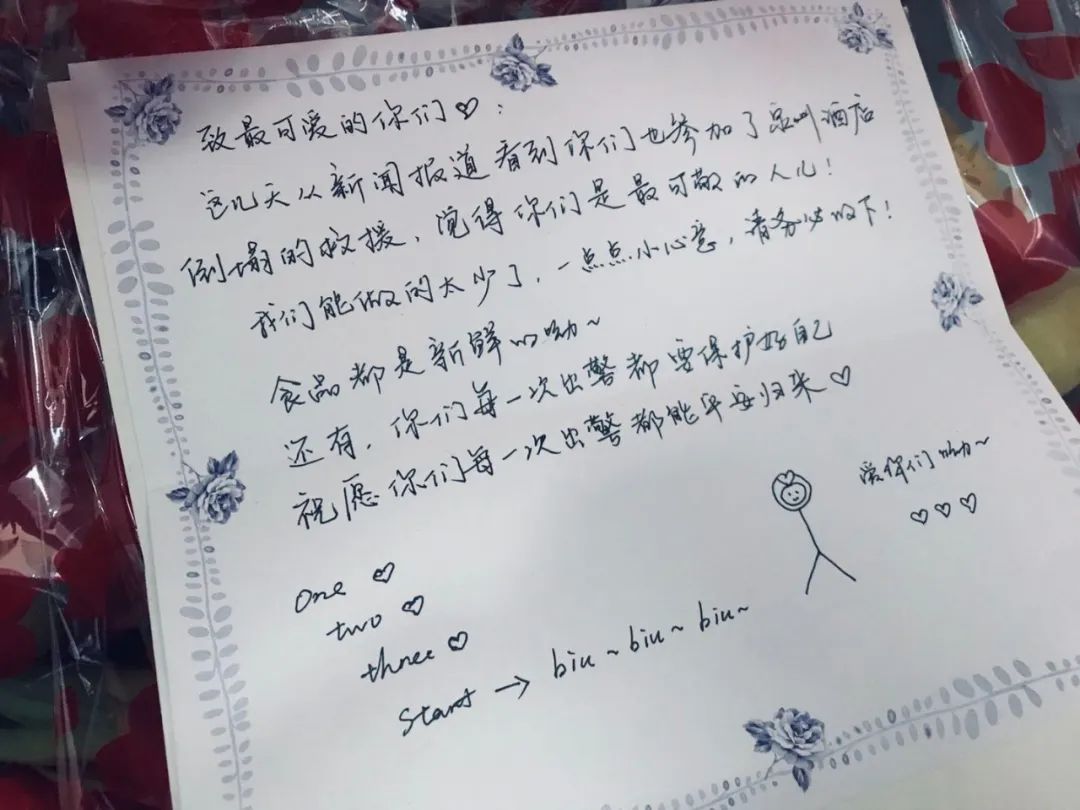 致最可爱的你们♡：
这几天从新闻报道看到你们也参加了泉州酒店
倒塌的救援，觉得你们是最可敬的人儿！
我们能做的太少了，一点点小心意，请务必收下！
食品都是新鲜的呦~
还有，你们每一次出警都要保护好自己
祝愿你们每一次出警都能平安归来♡
爱你们呦~
♡♡♡
one ♡
two ♡
three ♡
start → biu~biu~biu~